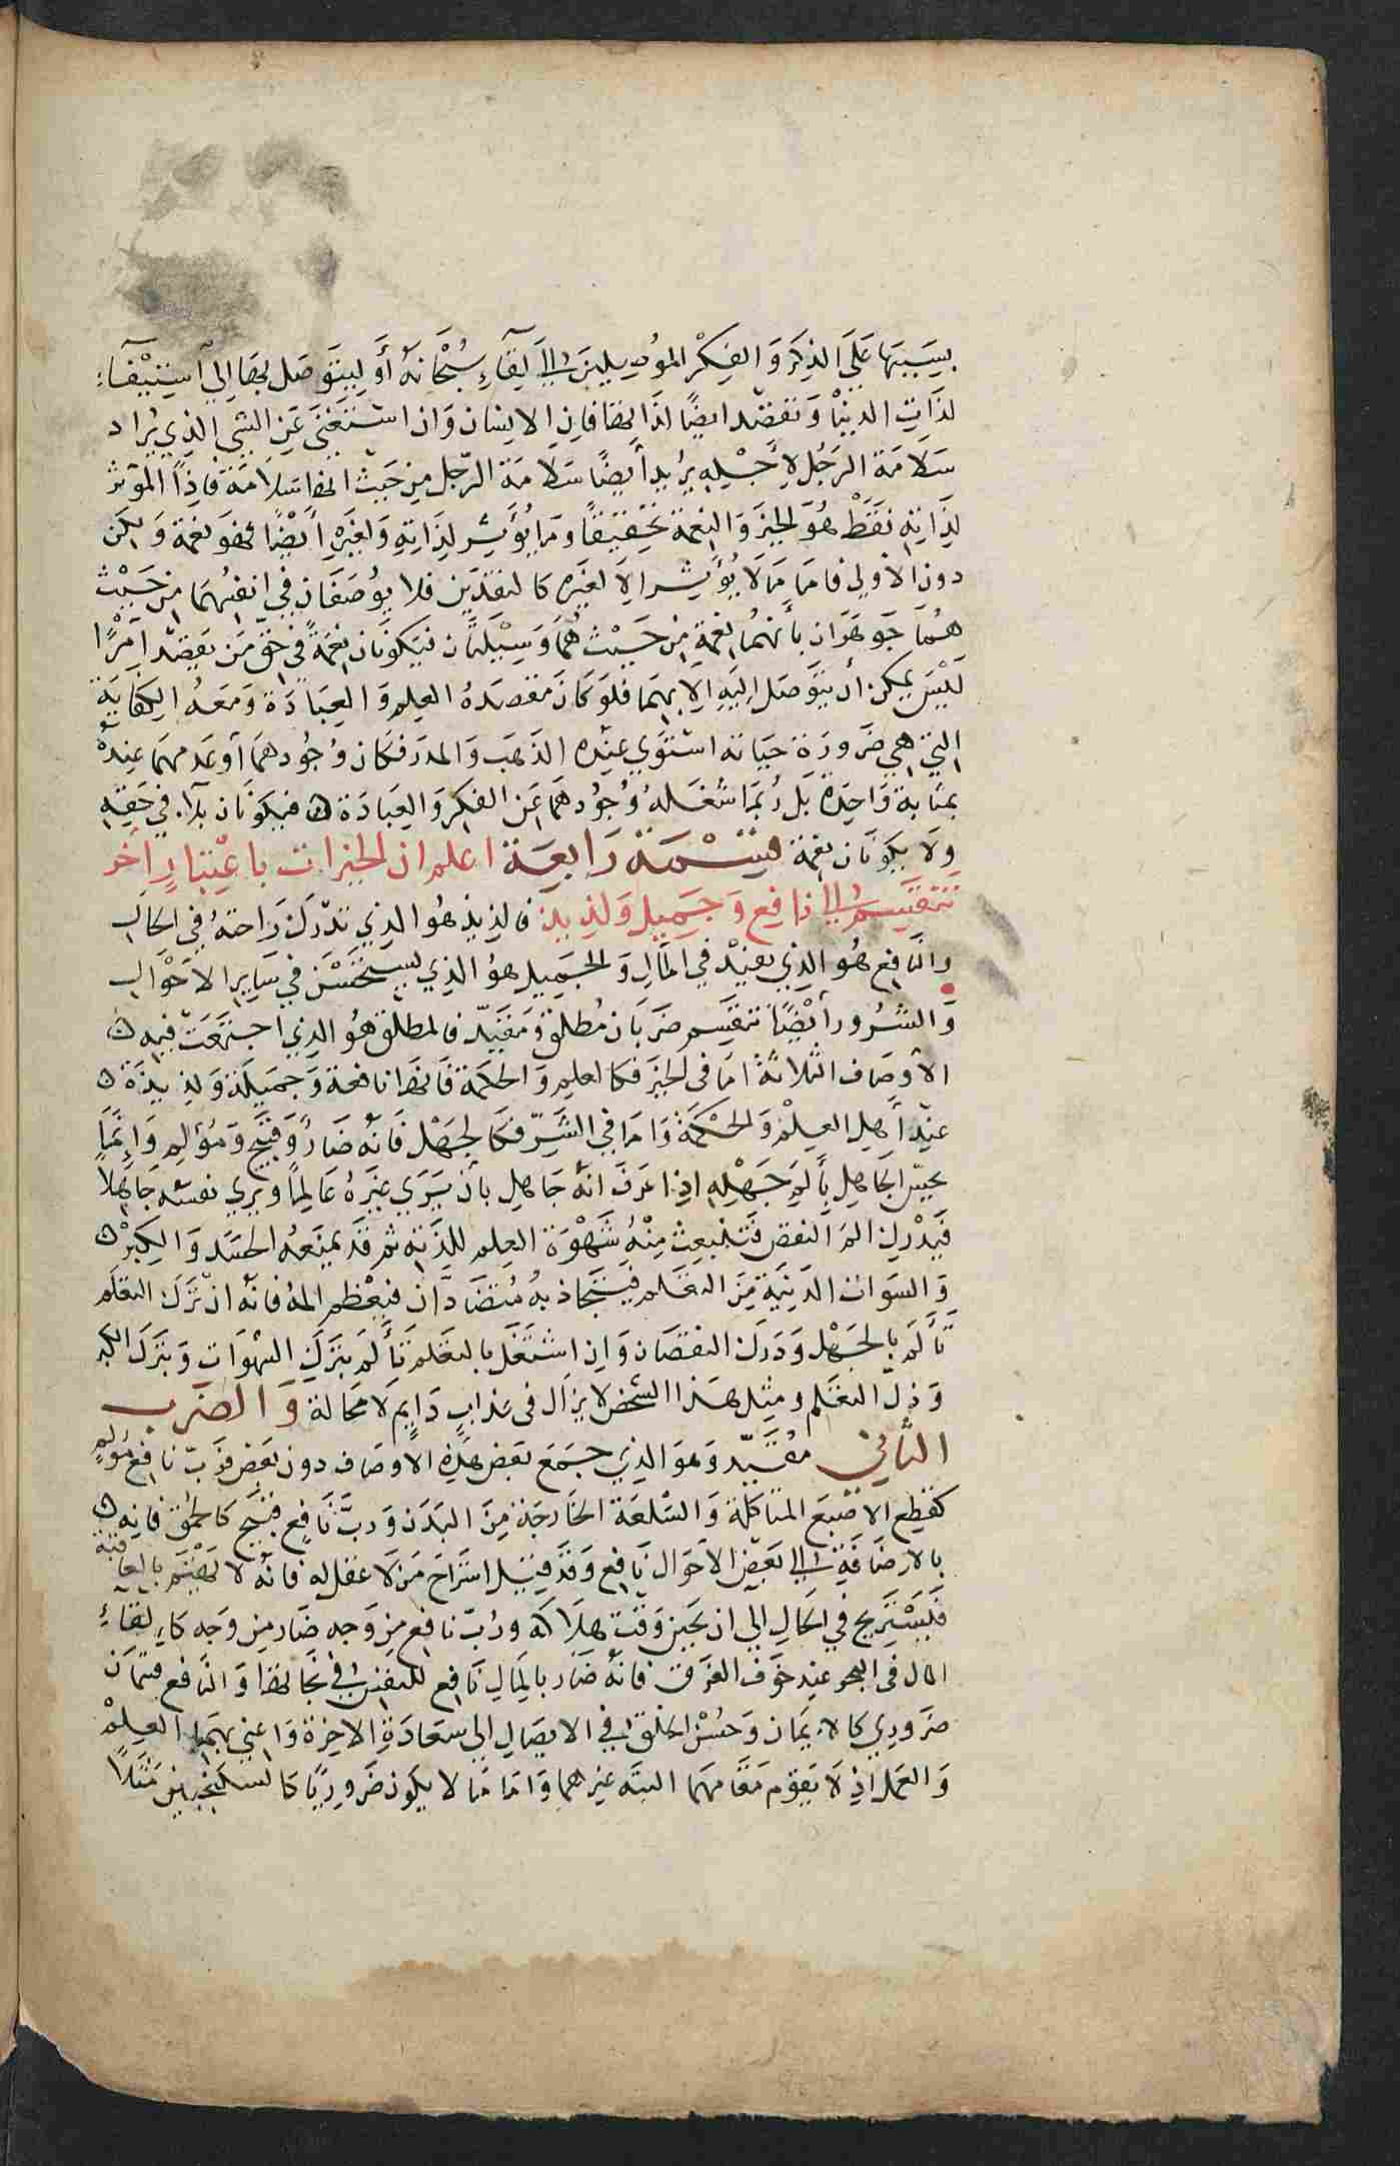 بسببها على الذكر والفكر الموصلين الى لقآء سبحانه أو ليتوصل بها الى استيفآء
لذات الدنيا وتقصد ايضًا لذاتها فان الانسان وان استغنى عن الشي الذي يراد
سلامة الرجل لأجله يريد أيضًا سلامة الرجل من حيث انها سلامة فاذًا المؤثر
لذاته فقط هو الخير والنعمة تحقيقًا وما يؤثر لذاته ولغيره أيضًا فهو نعمة ولكن
دون الأولى فاما ما لا يؤثر الا لغيره كالنقدين فلا يوصفان في انفسهما من حيث
هما جوهران بأنهما نعمة من حيث هما وسيلتان فيكونان نعمة في حق من يقصد امرًا
ليس يمكن أن يتوصل اليه الا بهما فلو كان مقصده العلم والعبادة ومعه الكفاية
التي هي ضرورة حياته استوى عنده الذهب والمدر فكان وجودهما أو عدمهما عنده
بمثابة واحدة بل ربما شغله وجودهما عن الفكر والعبادة فيكونان بلآء في حقه
ولا يكونان نعمة قسمة رابعة اعلم ان الخيرات باعتبار آخر
تنقسم الى نافع وجميل ولذيذ فالذيذ هو الذي تدرك راحته في الحال
والنافع هو الذي يفيد في المآل والجميل هو الذي يستحسن في ساير الاحوال
والشرور أيضًا تنقسم ضربان مطلق ومقيد فالمطلق هو الذي اجتمعت فيه
الأوصاف الثلاثة اما في الخير فكالعلم والحكمة فانها نافعة وجميلة ولذيذة
عند أهل العلم والحكمة واما في الشر فكالجهل فانه ضار وقبيح ومؤلم وانما
يحس الجاهل بألم جهله اذا عرف انه جاهل بأن يرى غيره عالمًا ويرى نفسه جاهلًا
فيدرك الم النقص فتنبعث منه شهوة العلم للذته ثم قد يمنعه الحسد والكبر
والسوات الدنية من التعلم فيتجاذبه متضادان فيعظم المه فانه ان ترك التعلم
تألم بالجهل ودرك النقصان وان اشتغل بالتعلم تألم بترك الشهوات وبترك الكبر
وذل التعلم ومثل هذا الشخص لا يزال في عذاب دايم لا محالة والضرب
الثاني مقيد وهو الذي جمع بعض هذه الأوصاف دون بعض فرب نافع مولم
كقطع الاصبع المتاكلة والسلعة الخارجة من البدن ورب نافع قبيح كالحمق فانه
بالاضافة الى بعض الأحوال نافع وقد قيل استراح من لا عقل له فانه لا يهتم بالعاقبة
فيستريح في الحال الى ان يحين وقت هلاكه ورب نافع من وجه ضار من وجه كالقآء
المال في البحر عند خوف الغرق فانه ضار بالمال نافع للنفس في نجاتها والنافع قسمان
ضروري كالايمان وحسن الخلق في الايصال الى سعادة الاخرة واعني بهما العلم
والعمل اذ لا يقوم مقامهما البتة غيرهما واما ما لا يكون ضروريًا كالسكنجبين مثلًا